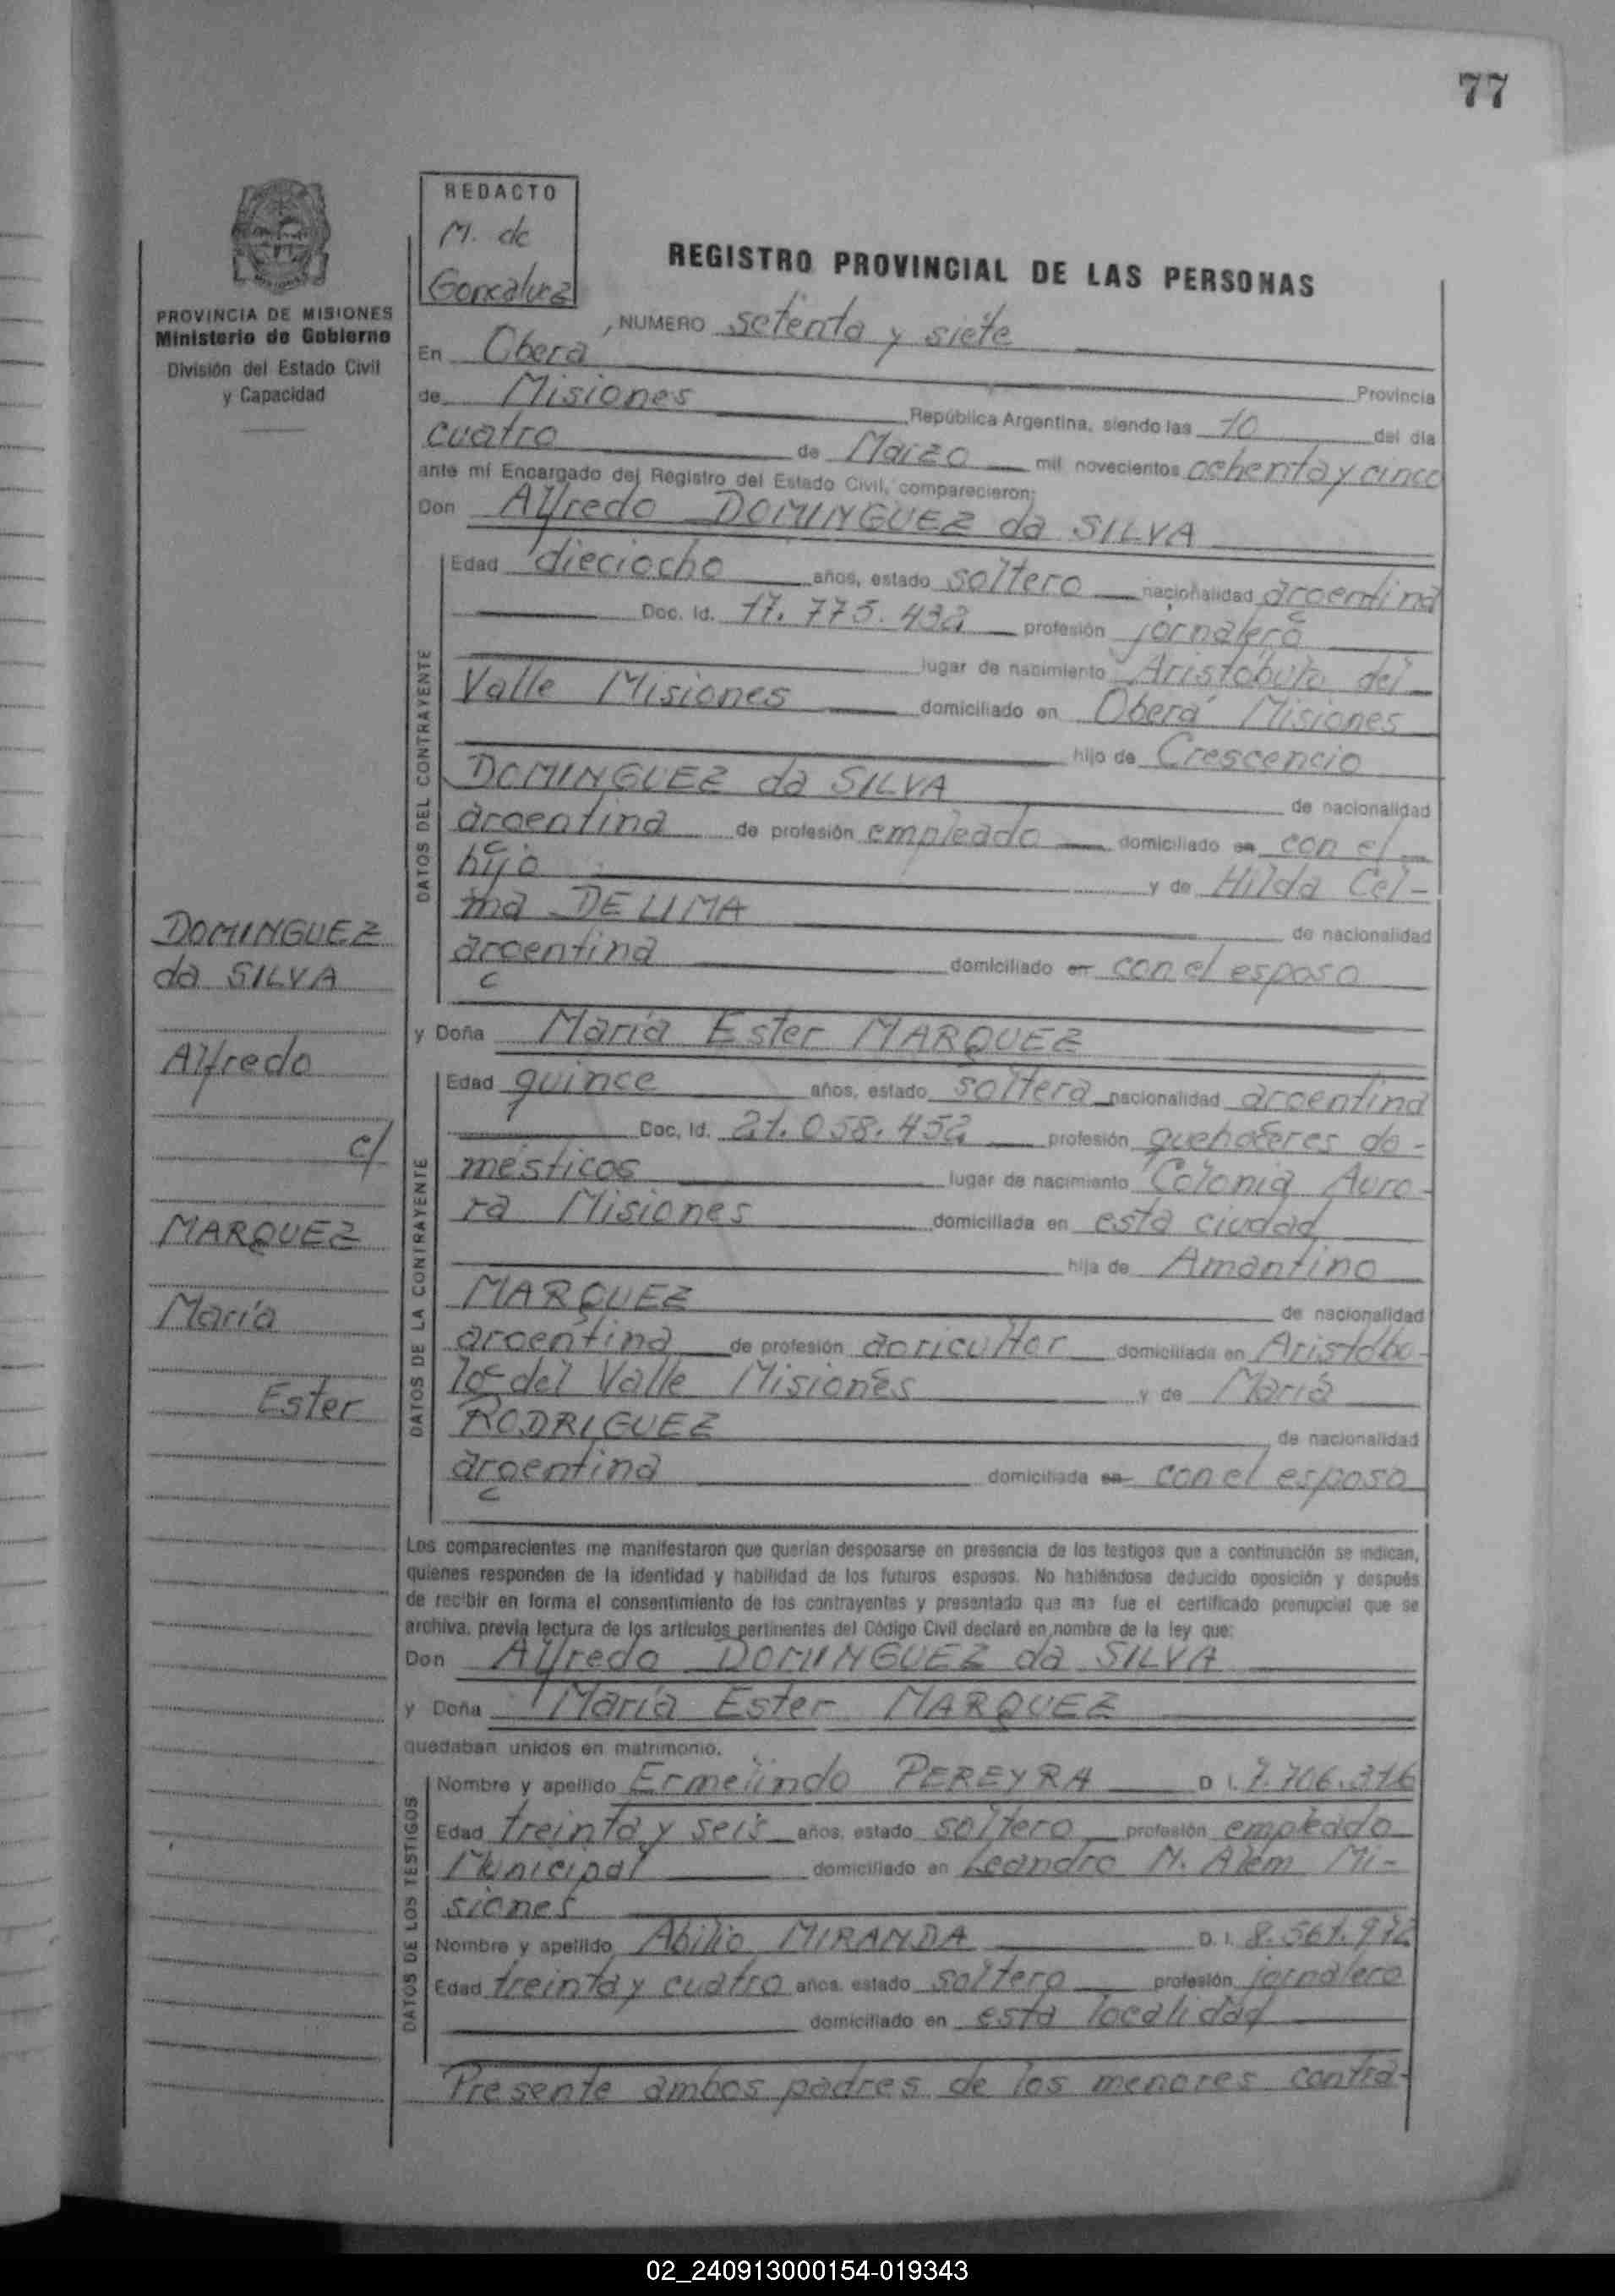 77
REDACTO
M. de
Goncalvez
REGISTRO PROVINCIAL DE LAS PERSONAS
PROVINCIA DE MISIONES
Ministerio de Gobierno
División del Estado Civil
y Capacidad
NUMERO setenta y siete
En Oberá Provincia
de Misiones República Argentina, siendo las 10 del día
cuatro de Marzo mil novecientos ochenta y cinco
ante mí Encargado del Registro del Estado Civil, comparecieron:
Don Alfredo DOMINGUEZ da SILVA
DATOS DEL CONTRAYENTE
Edad dieciocho años, estado soltero nacionalidad argentina
Doc. Id. 17.775.432 profesión jornalero
lugar de nacimiento Aristóbulo del
Valle Misiones domiciliado en Oberá Misiones
hijo de Crescencio
DOMINGUEZ da SILVA de nacionalidad
argentina de profesión empleado domiciliado en con el
hijo y de Hilda Cel-
ma DE LIMA de nacionalidad
argentina domiciliado en con el esposo
y Doña María Ester MARQUEZ
DATOS DE LA CONTRAYENTE
Edad quince años, estado soltera nacionalidad argentina
Doc. Id. 21.058.452 profesión quehaceres do-
mésticos lugar de nacimiento Colonia Auro-
ra Misiones domiciliada en esta ciudad
hija de Amantino
MARQUEZ de nacionalidad
argentina de profesión agricultor domiciliada en Aristóbu-
lo del Valle Misiones y de María
RODRIGUEZ de nacionalidad
argentina domiciliada en con el esposo
DOMINGUEZ
da SILVA
Alfredo
c/
MARQUEZ
María
Ester
Los comparecientes me manifestaron que querían desposarse en presencia de los testigos que a continuación se indican,
quienes responden de la identidad y habilidad de los futuros esposos. No habiéndose deducido oposición y después
de recibir en forma el consentimiento de los contrayentes y presentado que me fue el certificado prenupcial que se
archiva, previa lectura de los artículos pertinentes del Código Civil declaré en nombre de la ley que:
Don Alfredo DOMINGUEZ da SILVA
y Doña María Ester MARQUEZ
quedaban unidos en matrimonio.
DATOS DE LOS TESTIGOS
Nombre y apellido Ermelindo PEREYRA D. I. 7.706.316
Edad treinta y seis años, estado soltero profesión empleado
Municipal domiciliado en Leandro N. Alem Mi-
siones
Nombre y apellido Abilio MIRANDA D. I. 8.561.972
Edad treinta y cuatro años, estado soltero profesión jornalero
domiciliado en esta localidad
Presente ambos padres de los menores contra-
02_240913000154-019343